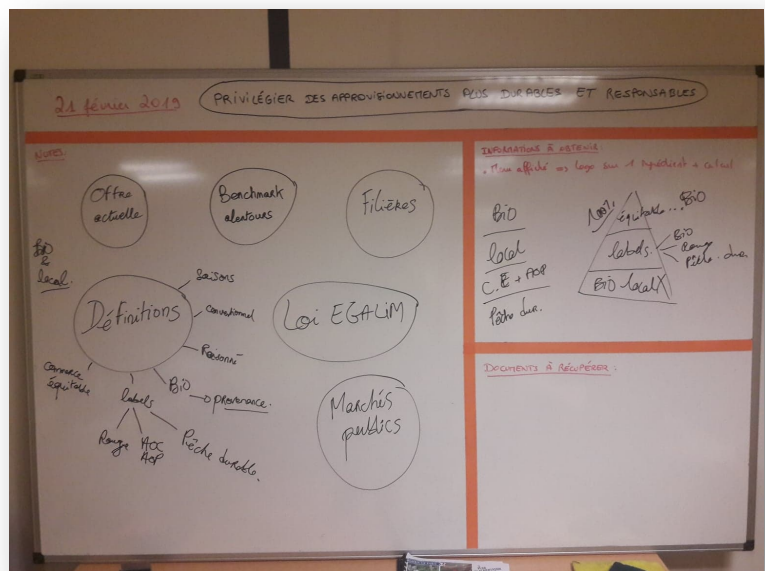 21 février 2019
PRIVILÉGIER DES APPROVISIONNEMENTS PLUS DURABLES ET RESPONSABLES
NOTES:
Offre
actuelle
Benchmark
alentours
Filières
BiO
&
local.
Définitions
Saisons
Conventionnel
Raisonné
BiO
→ provenance.
Commerce
équitable
labels
Rouge
AOC
AOP
Pêche durable.
Loi EGALiM
Marchés
publics
INFORMATIONS À OBTENIR:
affiché logo sur 1 ingrédient + calcul
BiO
local
C.E + AOP
Pêche dur.
100%
équitable...BiO
labels.
BiO
Rouge
Pêche. dur.
BiO local
DOCUMENTS À RÉCUPÉRER: